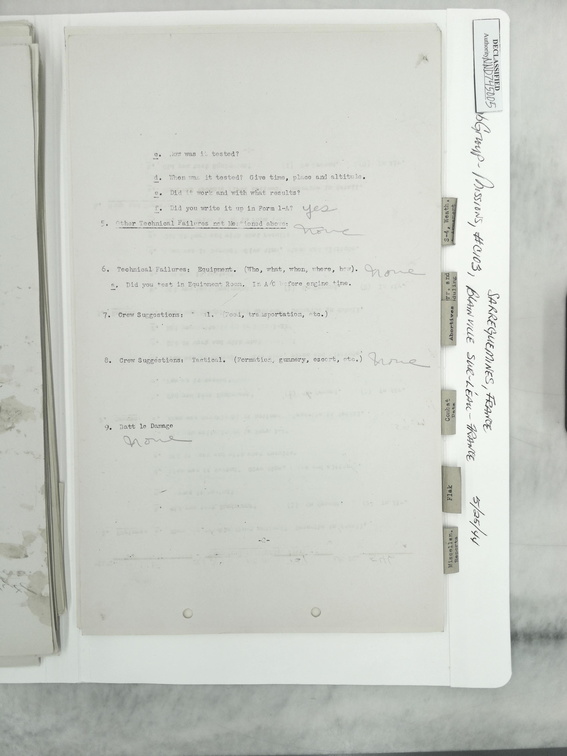 DECLASSIFIED
Authority NND745005
c. How was it tested?
d. When was it tested? Give time, place and altitude.
e. Did it work and with what results?
f. Did you write it up in Form 1-A? yes
5. Other Technical Failures not Mentioned above: none
6. Technical Failures: Equipment. (Who, what, when, where, how). none
a. Did you test in Equipment Room. In A/C before engine time.
7. Crew Suggestions: (Meal, transportation, etc.)
8. Crew Suggestions: Tactical. (Formation, gunnery, escort, etc.) none
9. Battle Damage
none
-2-
S-2, Weat.
Abortives
Combat
Data
Flak
Miscellan.
Records
Group - Missions, #C103, SARREGUEMINES, FRANCE
BLAINVILLE SUR-L'EAU - FRANCE 5/25/44